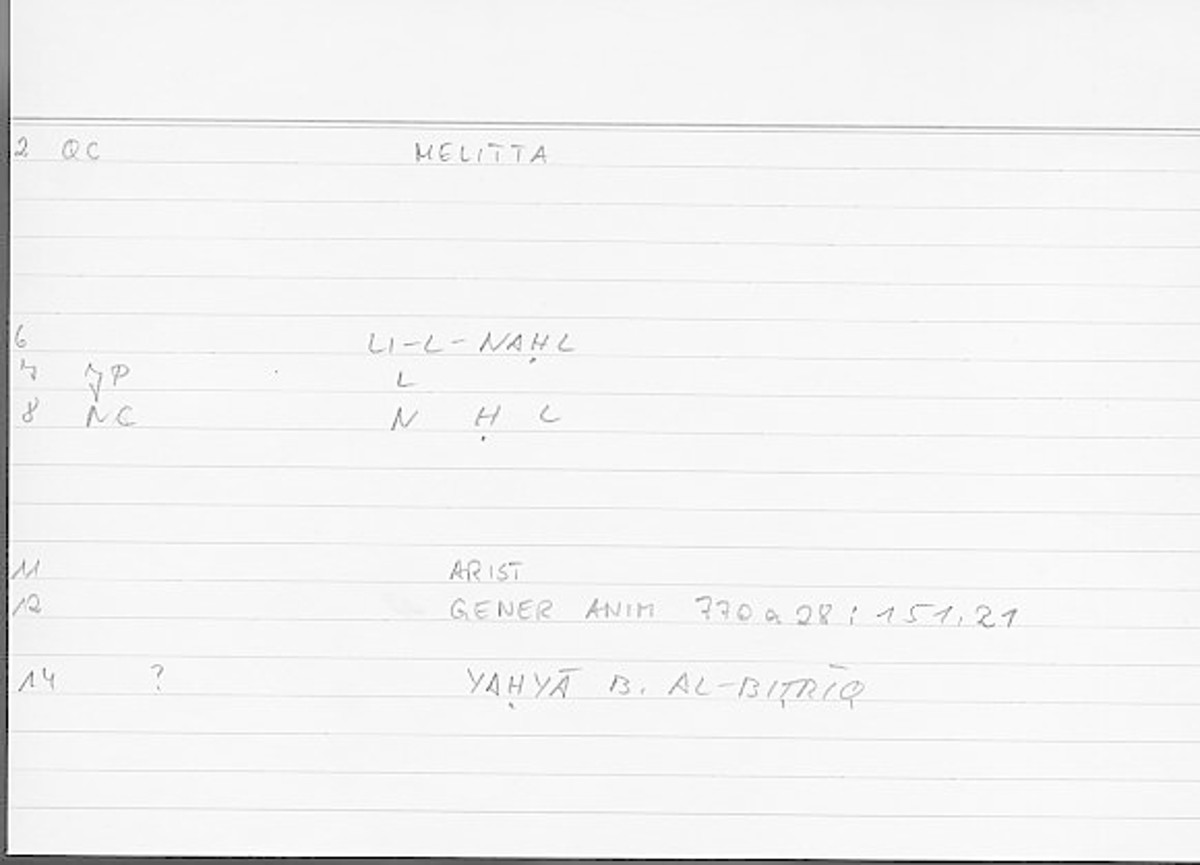 2 QC MELITTA
6 LI-L-NAḤL
7 JP L
8 NC N Ḥ L
11 ARIST
12 GENER ANIM 770a28 : 151.21
14 ? YAḤYĀ B. AL-BIṬRĪQ